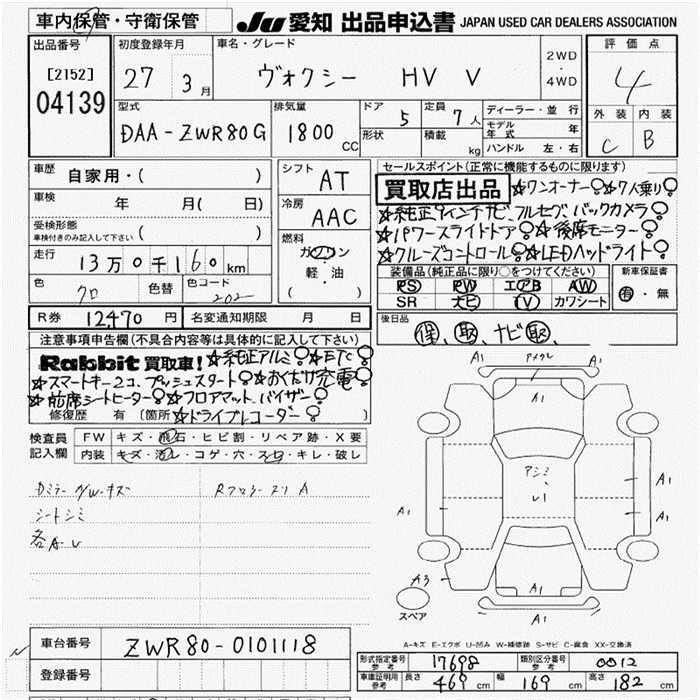 車内保管・守衛保管
JU 愛知 出品申込書 JAPAN USED CAR DEALERS ASSOCIATION
出品番号 初度登録年月 車名・グレード 評価点
[2152] 27 3月 ヴォクシー HV V 2WD・4WD 4
04139
型式 排気量 ドア 5 定員 7人 ディーラー・並行 外装 内装
DAA-ZWR80G 1800 CC 形状 積載 kg モデル年式 年 C B
ハンドル 左・右
車歴 自家用・( ) シフト AT セールスポイント(正常に機能するものに限ります)
車検 年 月( 日) 冷房 AAC 買取店出品 ☆ワンオーナー ☆7人乗り
☆純正9インチナビ、フルセグ、バックカメラ
受検形態 車検付きのみ記入して下さい ( ) 燃料 ☆パワースライドドア ☆後席モニター
走行 13万0千160km ガソリン ☆クルーズコントロール ☆LEDヘッドライト
軽・油 装備品(純正品に限り○をつけてください) 新車保証書
色 クロ 色替 色コード 202 ( ) PS PW エアB AW 有・無
SR ナビ TV カワシート
R券 12,470円 名変通知期限 月 日 後日品
保、取、ナビ取、
注意事項申告欄(不具合内容等は具体的に記入して下さい)
Rabbit 買取車! ☆純正アルミ ☆ETC
☆スマートキー2コ、プッシュスタート ☆おくだけ充電
☆前席シートヒーター ☆フロアマット、バイザー
修復歴 有 〔箇所 ☆ドライブレコーダー
検査員記入欄 FW キズ・飛石・ヒビ割・リペア跡・X要
内装 キズ・汚レ・コゲ・穴・スレ・キレ・破レ
シートシミ
各A・U
A1 A1
A1
A1 A1
A1
A3 A1
スペア A1
A-キズ E-エクボ U-凹み W-補修跡 S-サビ C-腐食 XX-交換済
車台番号 ZWR80-0101118
登録番号
形式指定番号 参考 17698 類別区分番号 参考 0012
車庫証明用 参考 長さ 469cm 幅 169cm 高さ 182cm